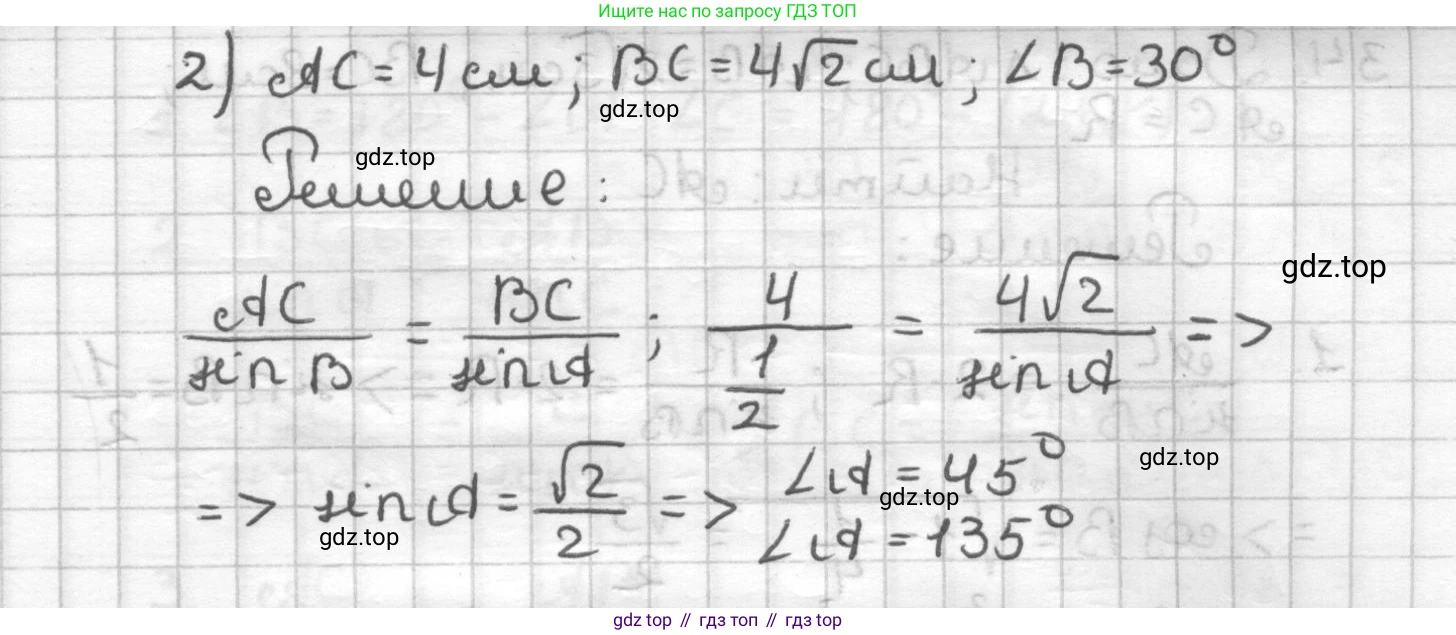 Ищите нас по запросу ГДЗ ТОП
2) AC = 4 см; BC = 4√2 см; ∠B = 30°
gdz.top
gdz.top
Решение:
gdz.top
AC/sin B = BC/sin A; 4/(1/2) = 4√2/sin A =>
gdz.top
=> sin A = √2/2 => ∠A = 45°
gdz.top
∠A = 135°
gdz.top
gdz.top // гдз топ // gdz.top